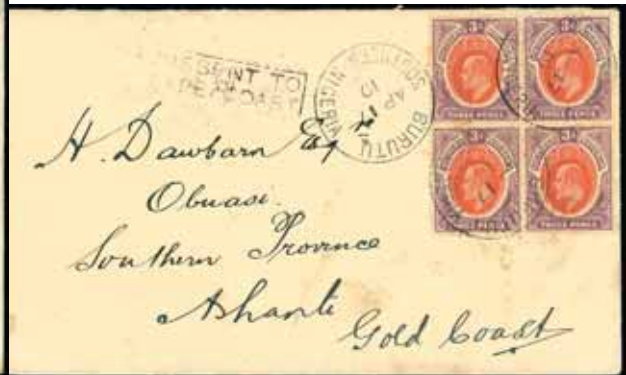 MISSENT TO
CAPE COAST
BURUTU
SOUTHERN NIGERIA
AP 17
10
3d 3d
THREE PENCE THREE PENCE
3d 3d
THREE PENCE THREE PENCE
H. Dawbarn Esqre
Obuasi.
Southern Province
Ashanti
Gold Coast